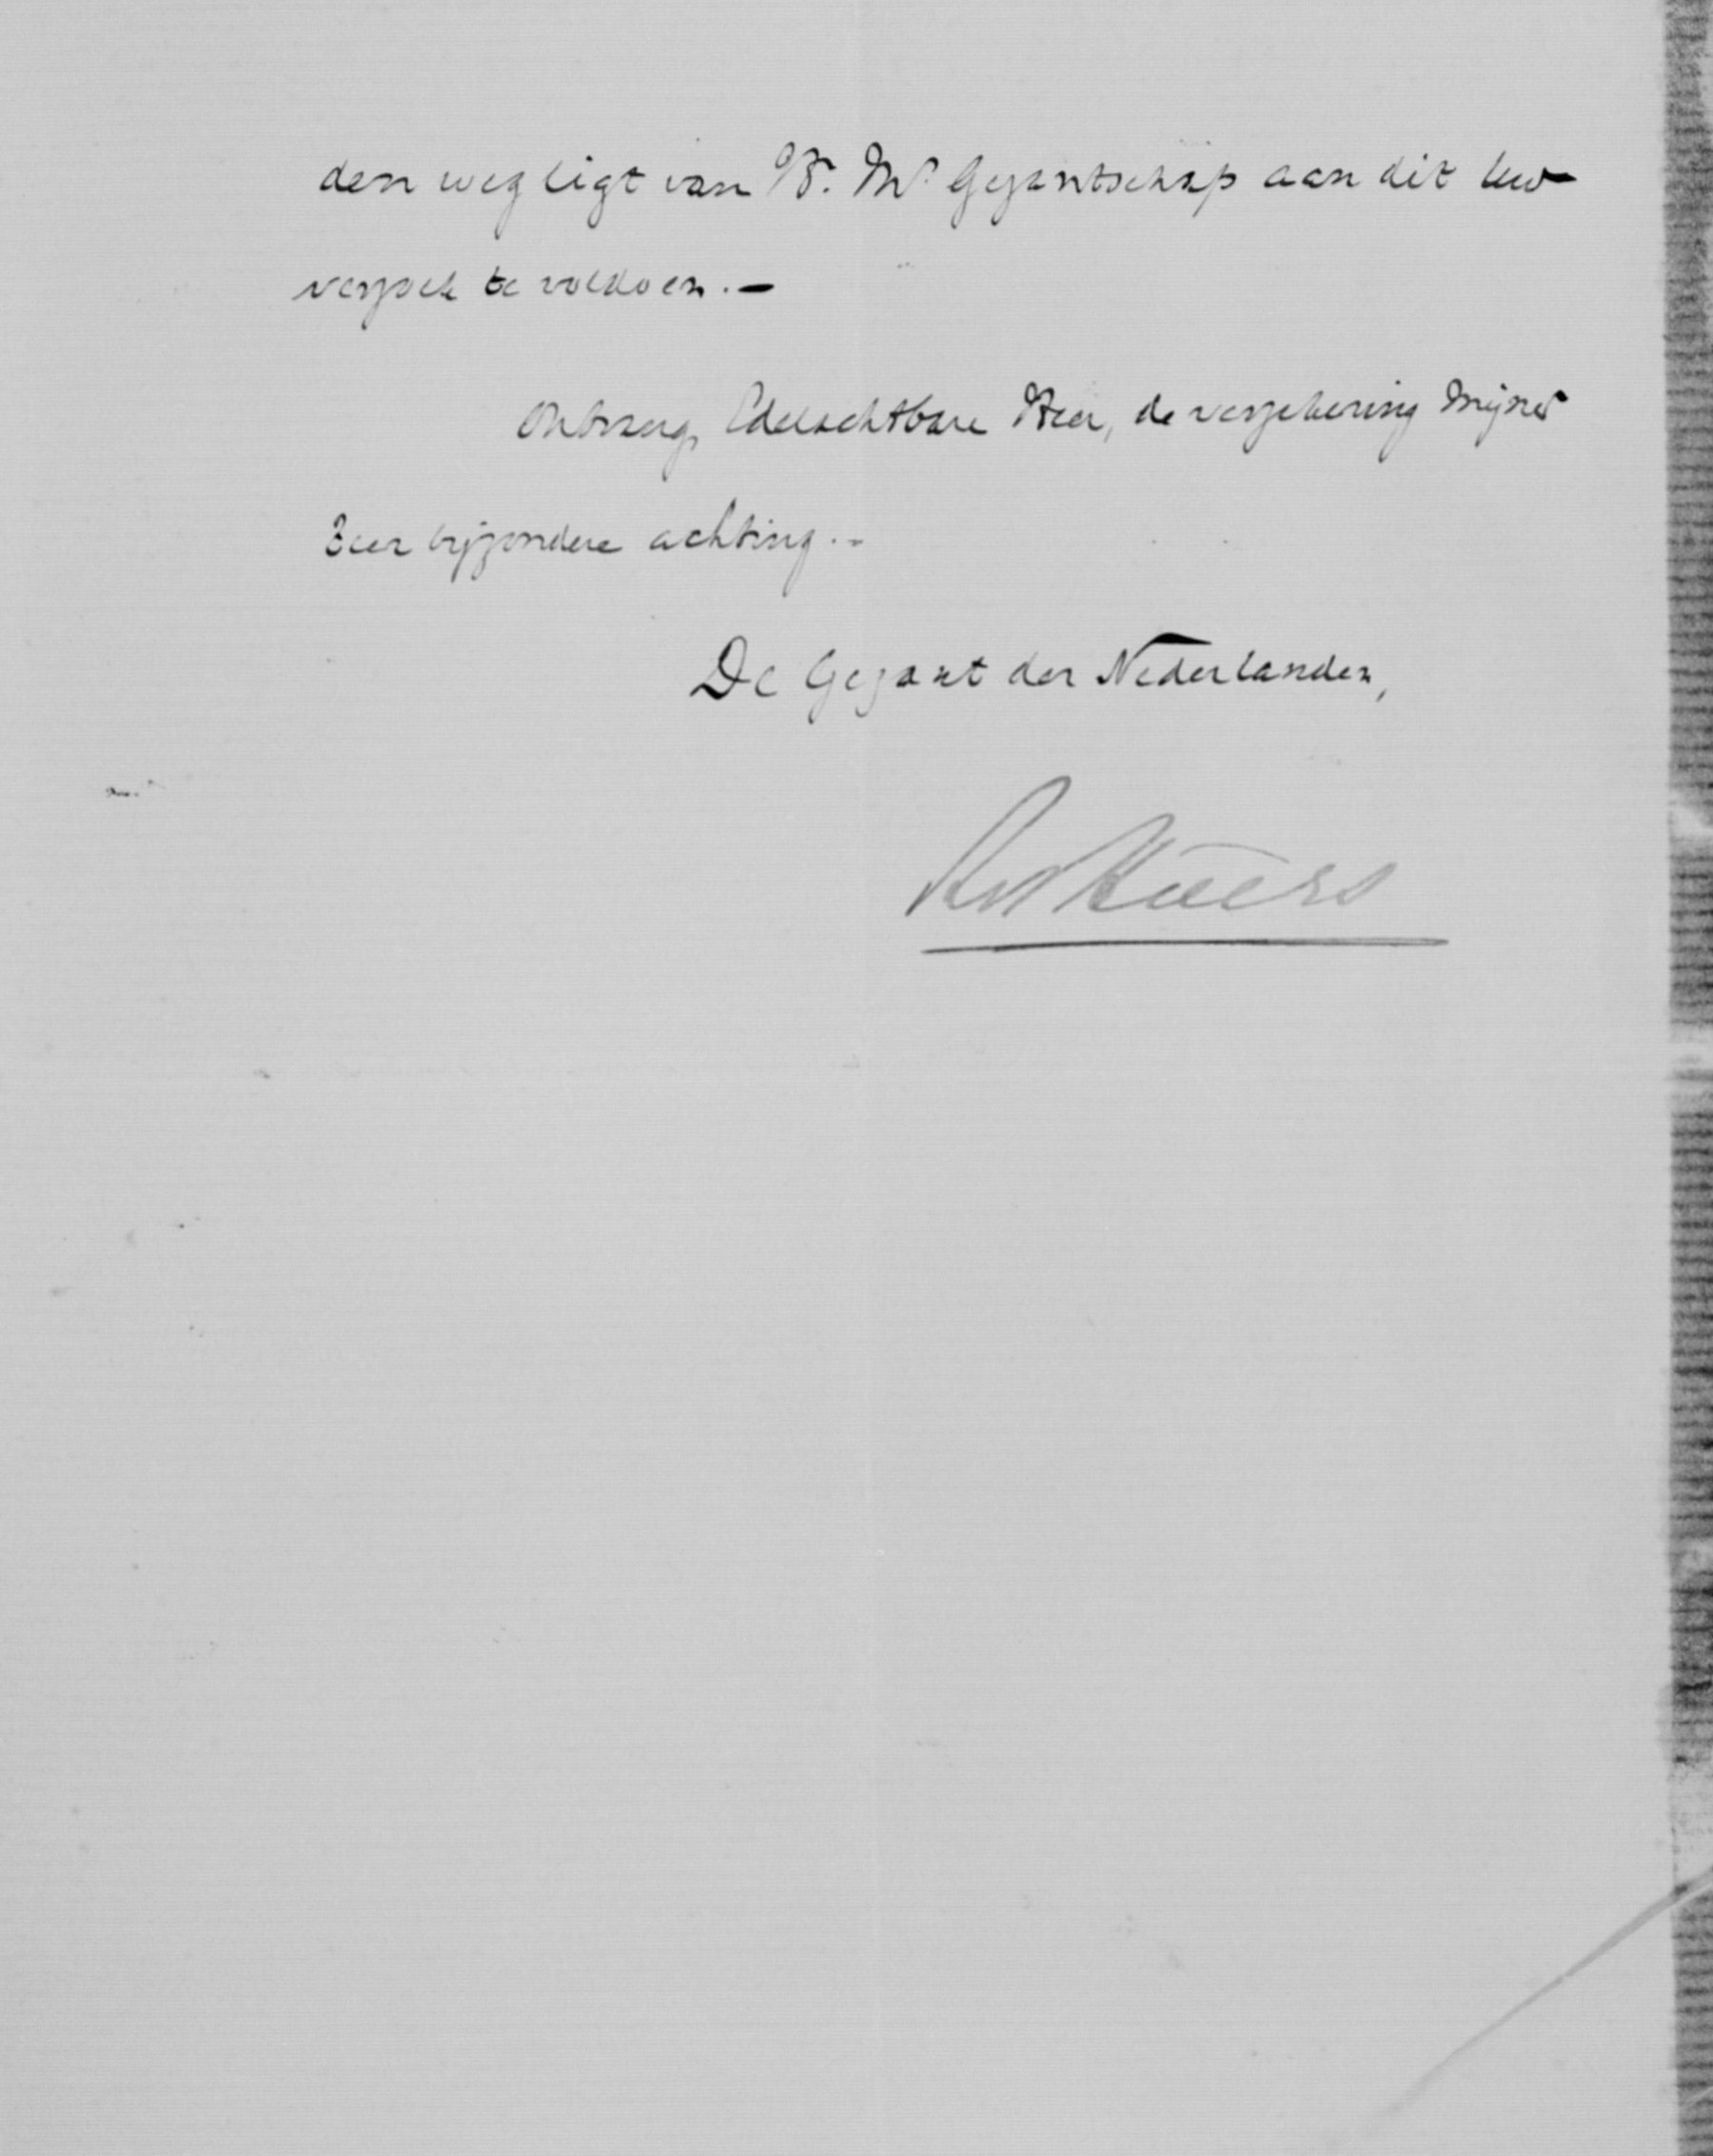 den weg ligt van H. M. Gezantschap aan dit Uw
verzoek te voldoen. –
Ontvang, Edelachtbare Heer, de verzekering mijner
zeer bijzondere achting. –
De Gezant der Nederlanden,